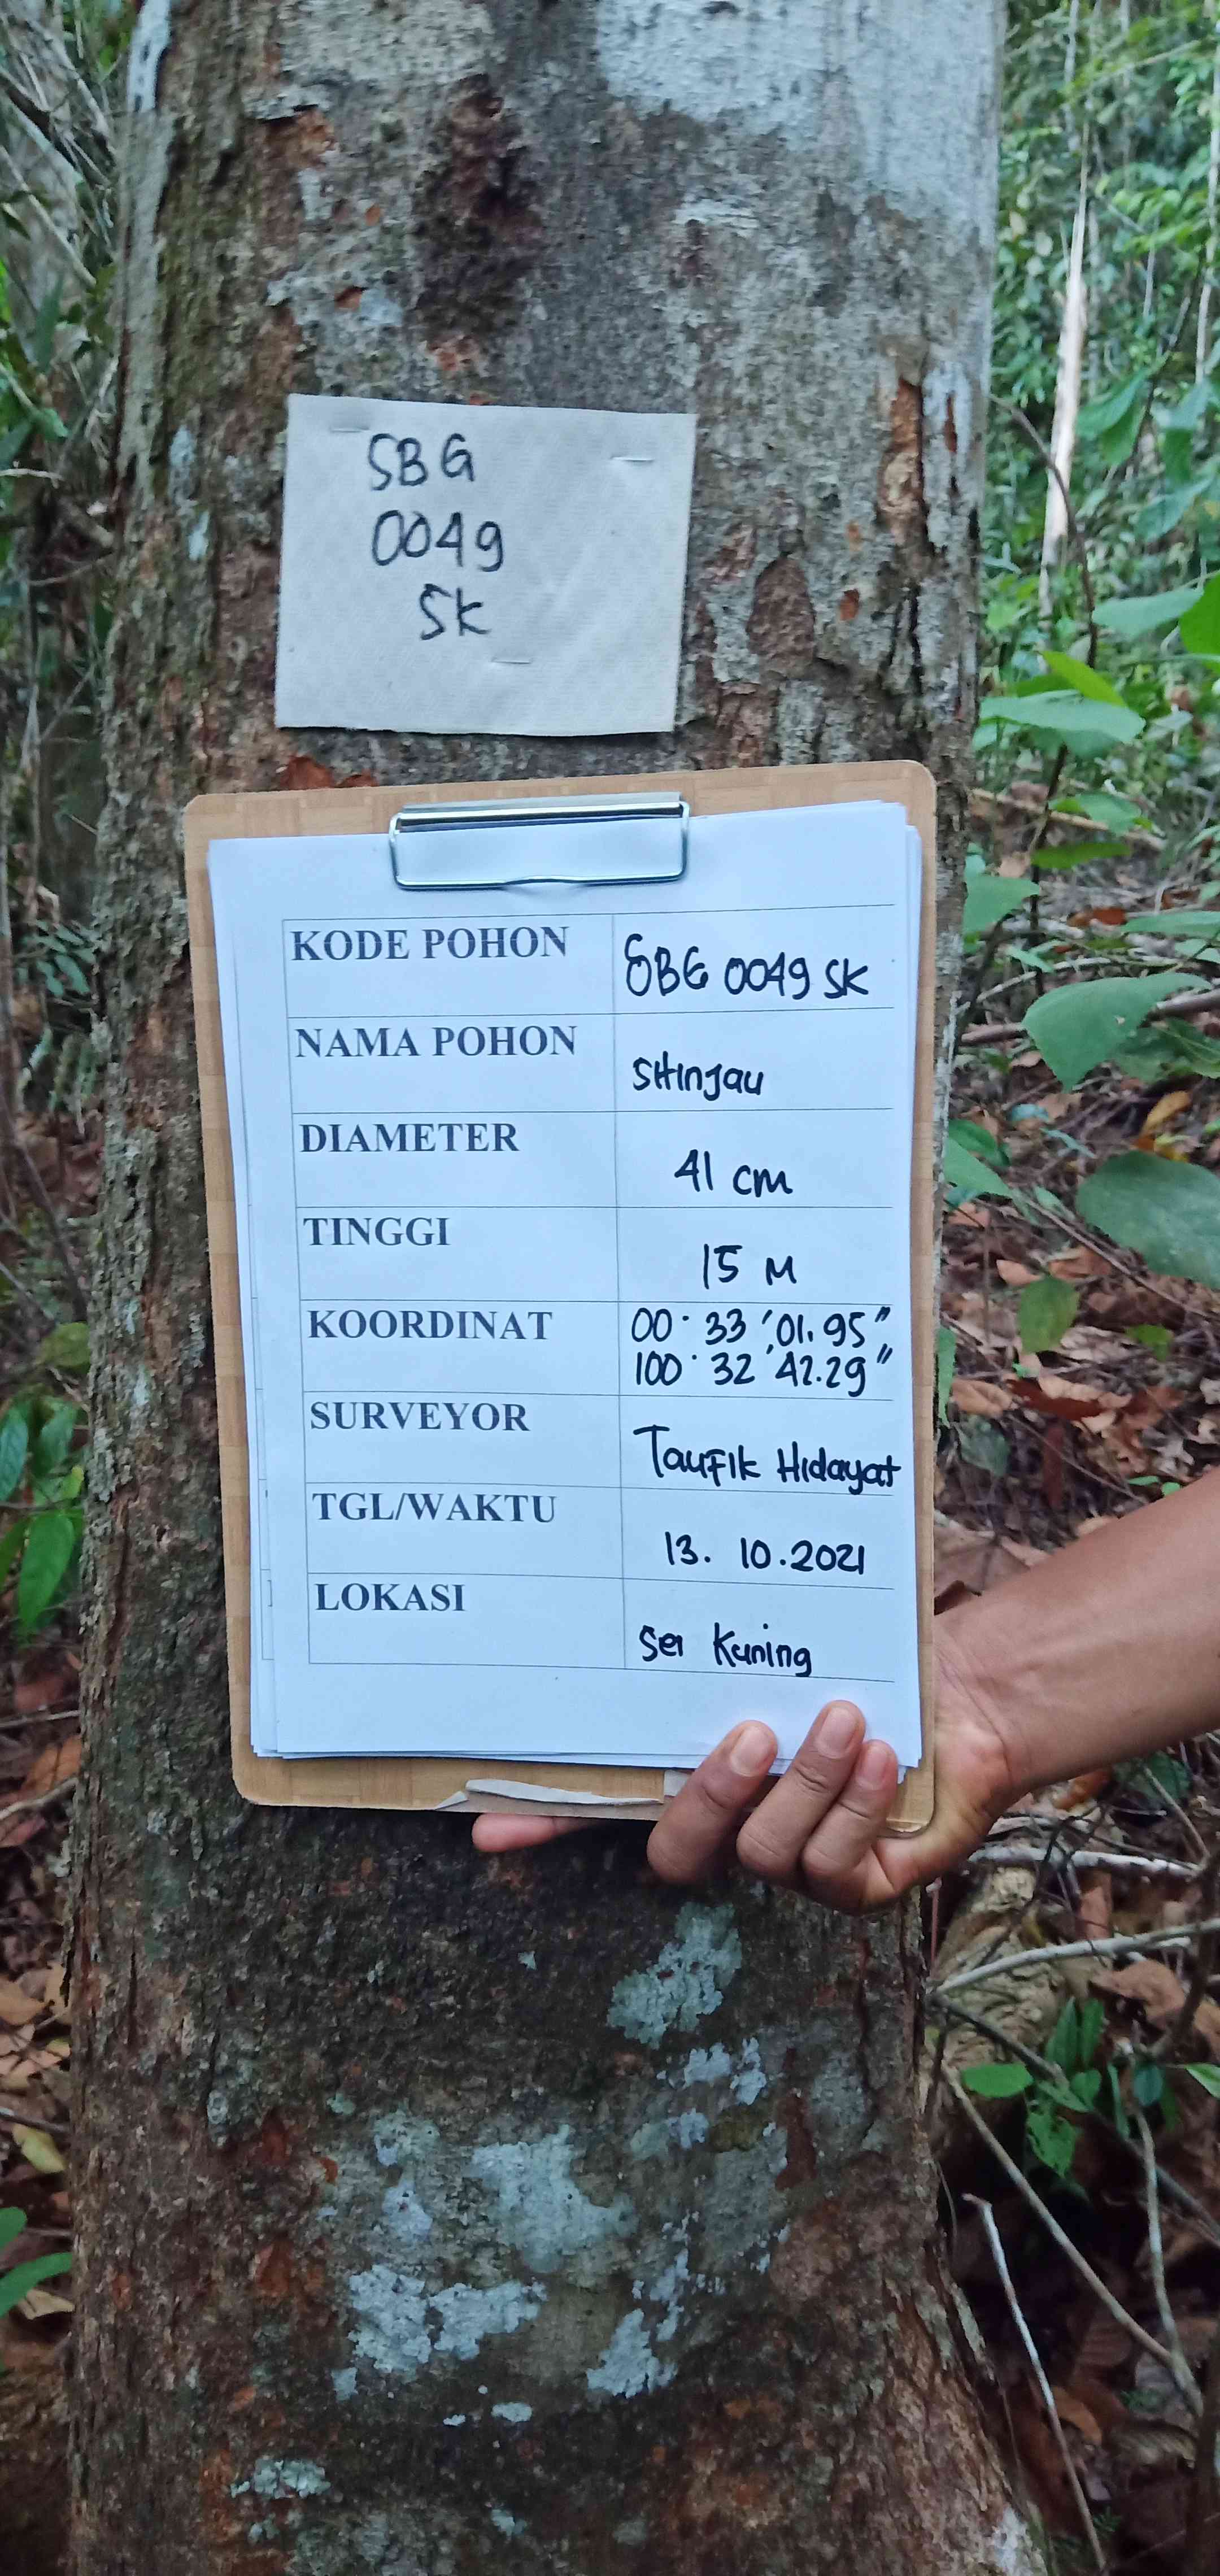 SBG
0049
SK
KODE POHON SBG 0049 SK
NAMA POHON SItInjau
DIAMETER 41 cm
TINGGI 15 M
KOORDINAT 00° 33 '01.95"
100° 32 '42.29"
SURVEYOR Taufik Hidayat
TGL/WAKTU 13. 10.2021
LOKASI Sei Kuning